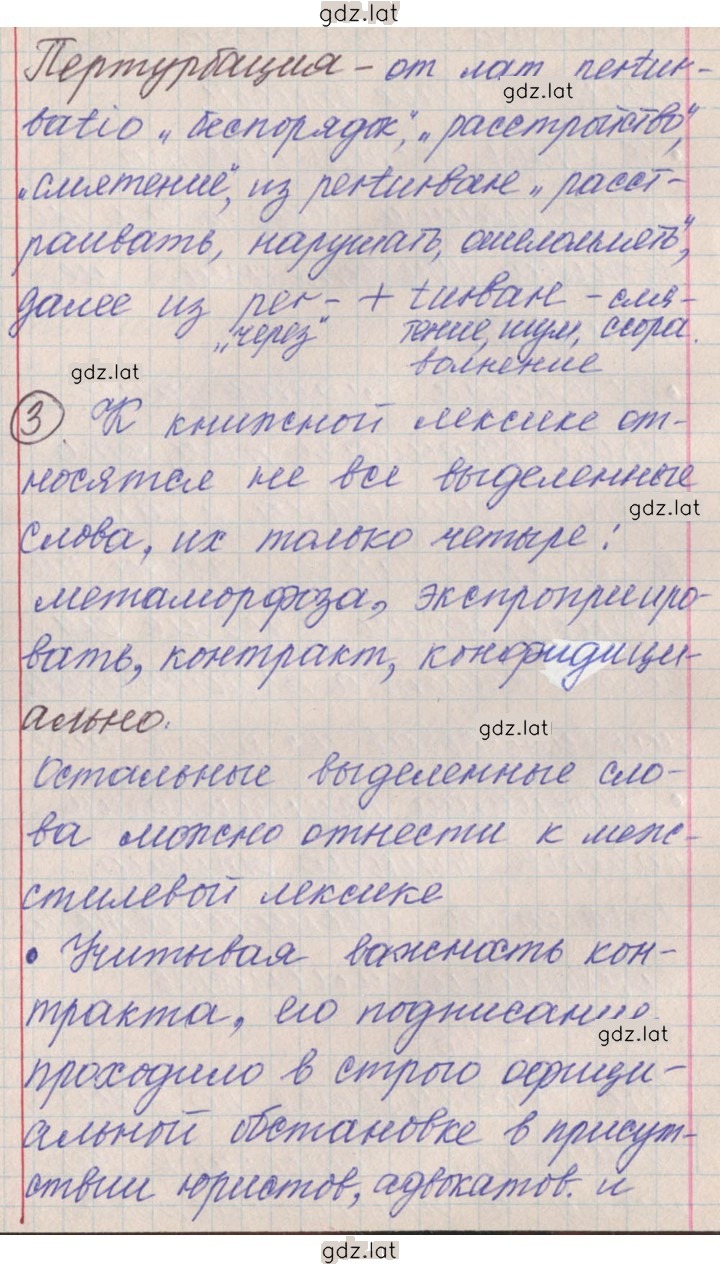 gdz.lat
Пертурбация - от лат pertur-
gdz.lat
batio „беспорядок", „расстройство",
„смятение", из perturbare „расст-
раивать, нарушать, ошеломлять",
далее из per- + turbare - смя-
„через" тение, шум, ссора.
волнение
gdz.lat
3 К книжной лексике от-
носятся не все выделенные
gdz.lat
слова, их только четыре:
метаморфоза, экспроприиро-
вать, контракт, конфидици-
ально.
gdz.lat
Остальные выделенные сло-
ва можно отнести к меж-
стилевой лексике
• Учитывая важность кон-
тракта, его подписание
gdz.lat
проходило в строго официи-
альной обстановке в присут-
ствии юристов, адвокатов. и
gdz.lat